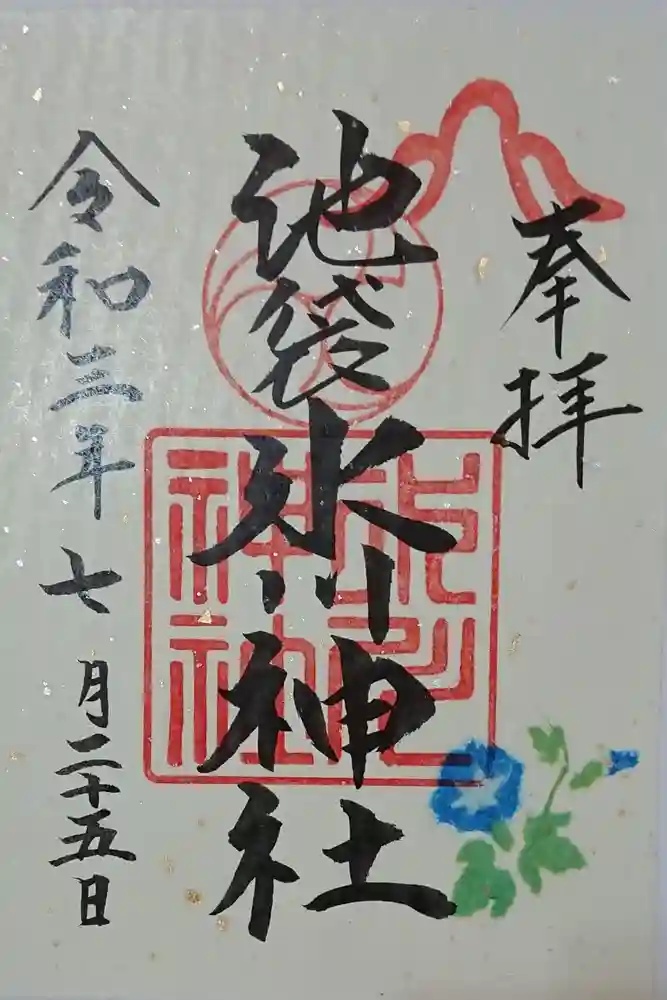 奉拝
池袋氷川神社
氷川
神社
令和三年七月二十五日